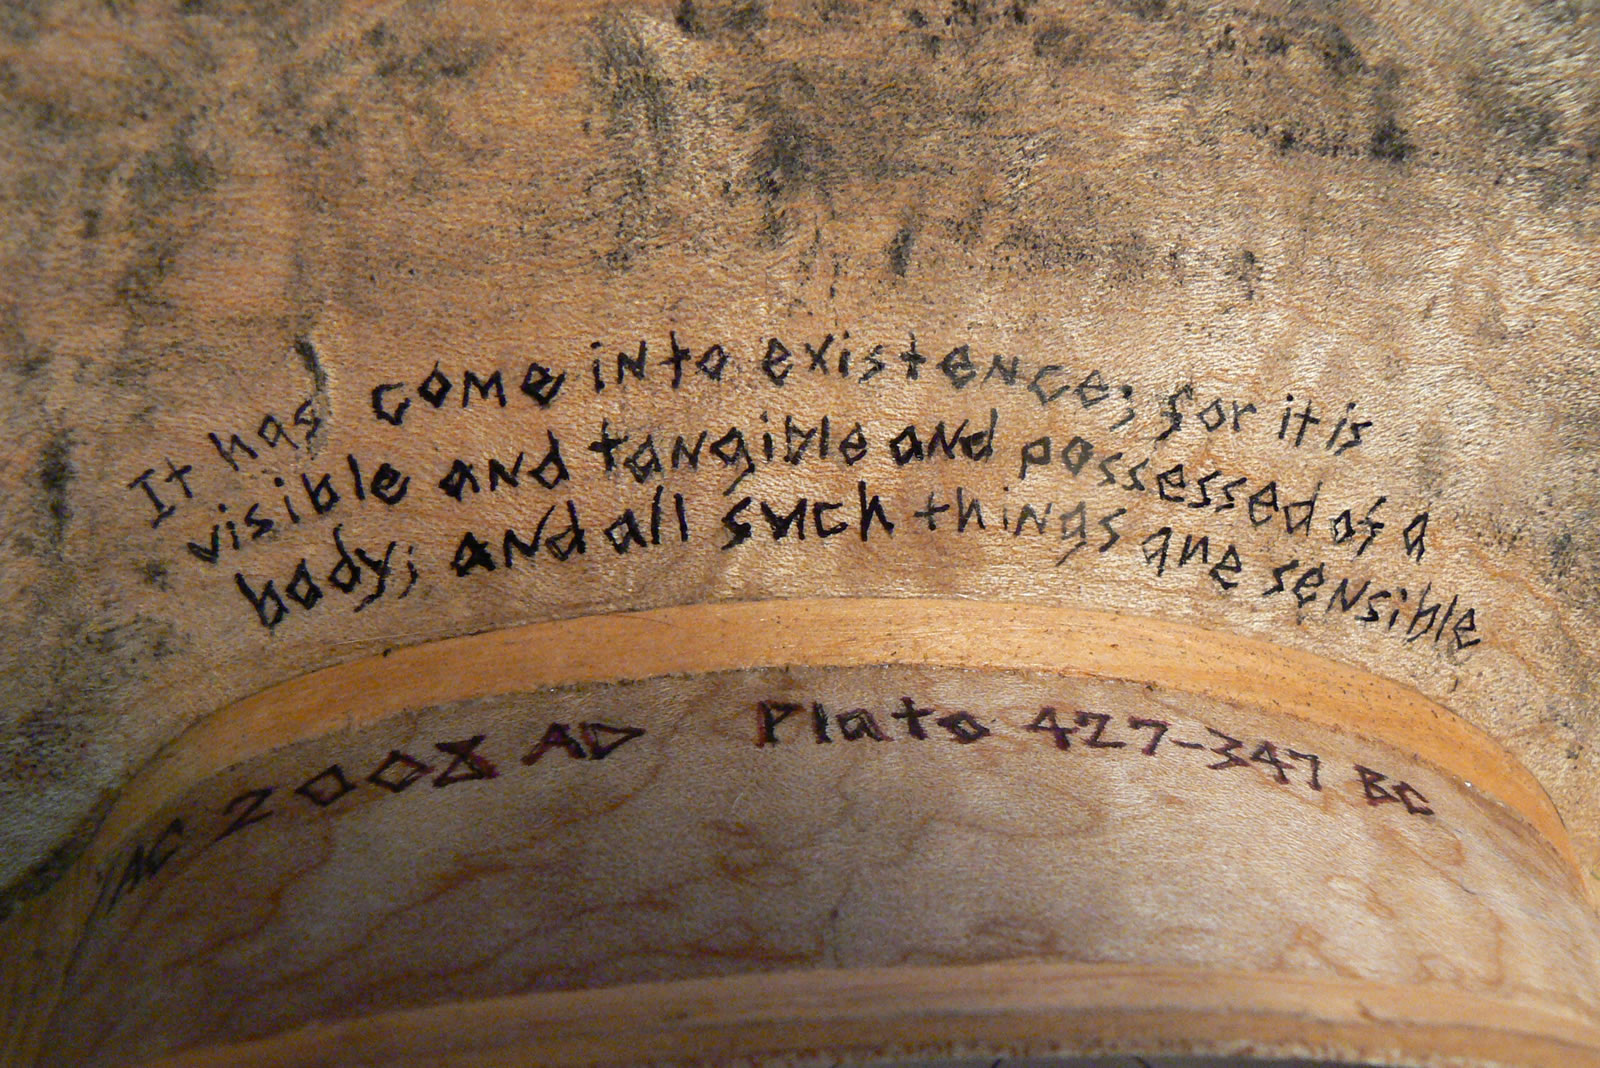 It has come into existence; for it is
visible and tangible and possessed of a
body; and all such things are sensible
JAC 2008 AD Plato 427-347 BC